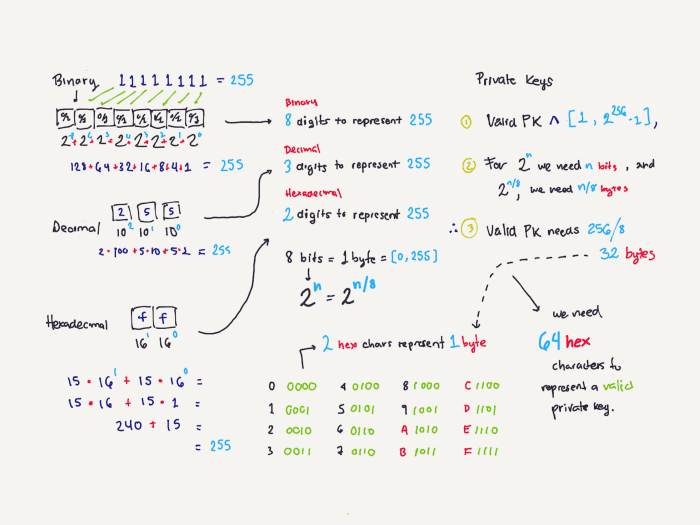 Binary 11111111 = 255
0/1 0/1 0/1 0/1 0/1 0/1 0/1 0/1
2^7+2^6+2^5+2^4+2^3+2^2+2^1+2^0
128+64+32+16+8+4+1 = 255
Decimal
2 5 5
10^2 10^1 10^0
2·100+5·10+5·1 = 255
Hexadecmal
f f
16^1 16^0
15 · 16^1 + 15 · 16^0 =
15 · 16 + 15 · 1 =
240 + 15 =
= 255
Binary
8 digits to represent 255
Decimal
3 digits to represent 255
Hexadecimal
2 digits to represent 255
8 bits = 1 byte = [0,255]
2^n = 2^n/8
2 hex chars represent 1 byte
0 0000 4 0100 8 1000 C 1100
1 0001 5 0101 9 1001 D 1101
2 0010 6 0110 A 1010 E 1110
3 0011 7 0110 B 1011 F 1111
Private Keys
1 Valid PK ∧ [1, 2^256-1],
2 For 2^n we need n bits, and
2^n/8, we need n/8 bytes
∴ 3 Valid PK needs 256/8
32 bytes
we need
64 hex
characters to
represent a valid
private key.